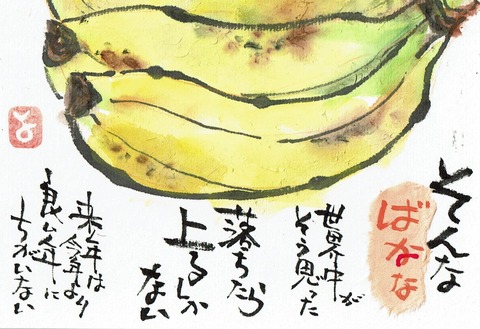 そんな
ばかな
世界中が
そう思った
落ちたら
上るしか
ない
来年は
今年より
良い年に
ちがいない